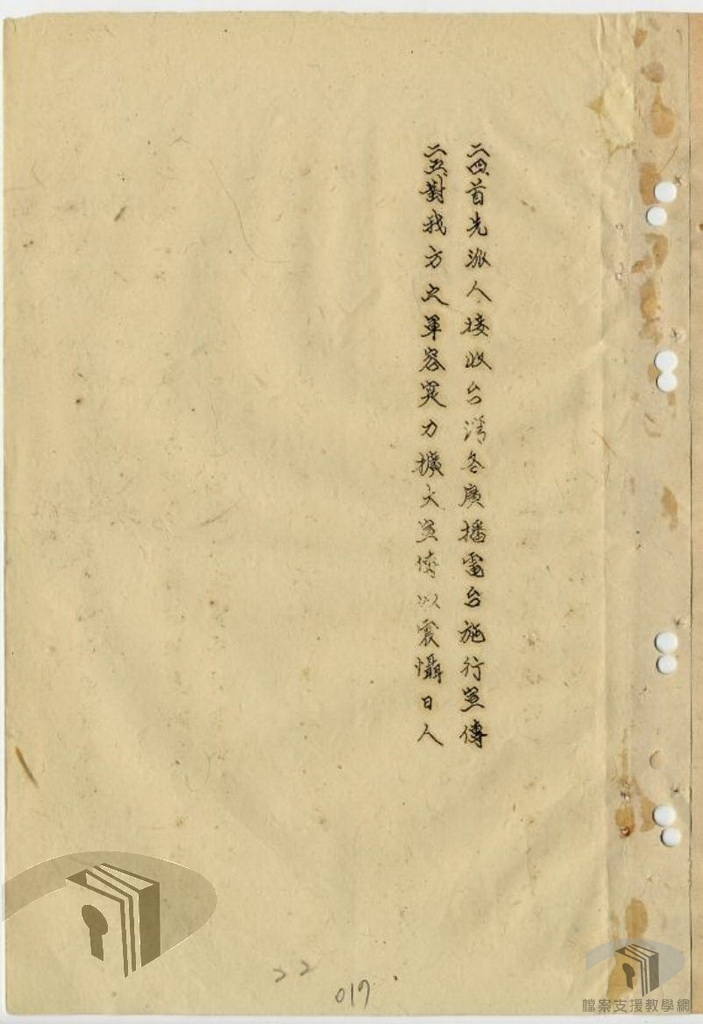 二四、首先派人接收台灣各廣播電台施行宣傳
二五、對我方之軍容实力擴大宣傳以震懾日人
22
017
檔案支援教學網